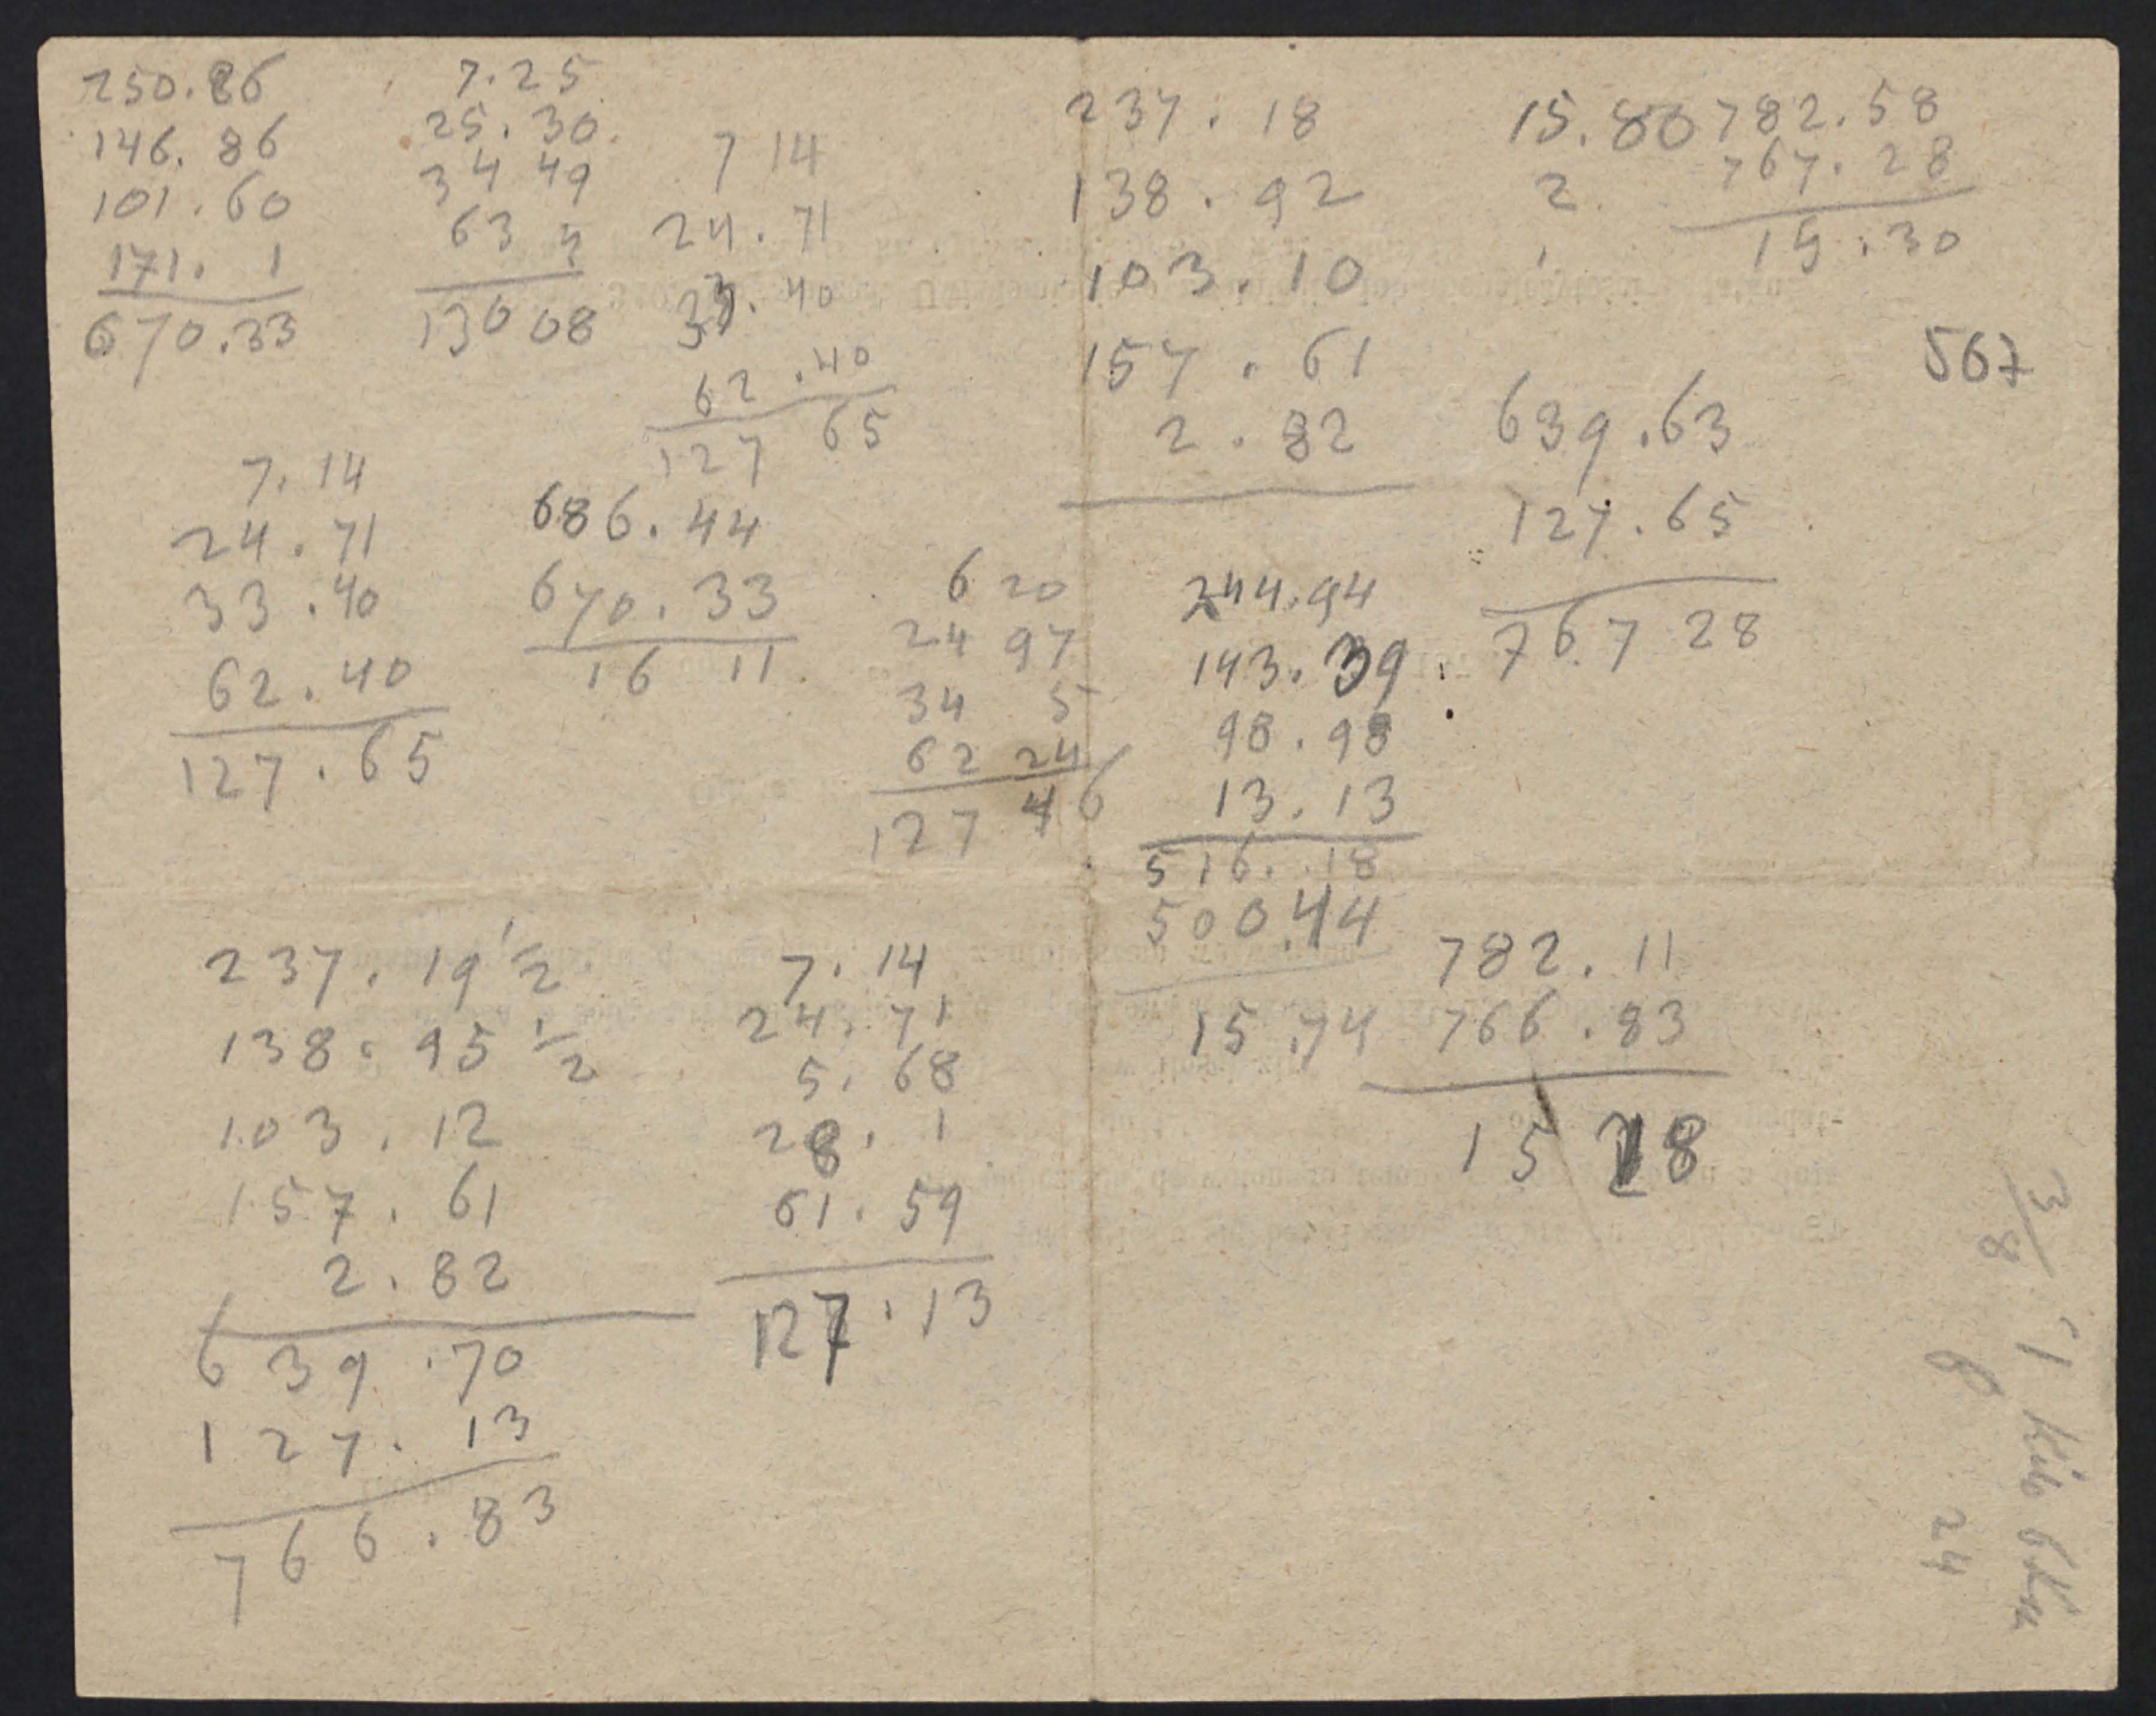 250.86
146.86
101.60
171. 1
670.33
7.25
25.30
34 49
63 4
130 08
7 14
24.71
33.40
62.40
127 65
237.18
138.92
103.10
157.61
2.82
15.80
2
782.58
767.28
15.30
567
639.63
127.65
767 28
7.14
24.71
33.40
62.40
127.65
686.44
670.33
16 11
6 20
24 97
34 5
62 24
127 46
244.94
143.39
98.98
13.13
516.18
500.44
15.74
782.11
766.83
15 28
237.19 1/2
138.95 1/2
103.12
157.61
2.82
639.70
127.13
766.83
7.14
24.71
5.68
28. 1
61.59
127.13
3/8
1 Kilo
8 24